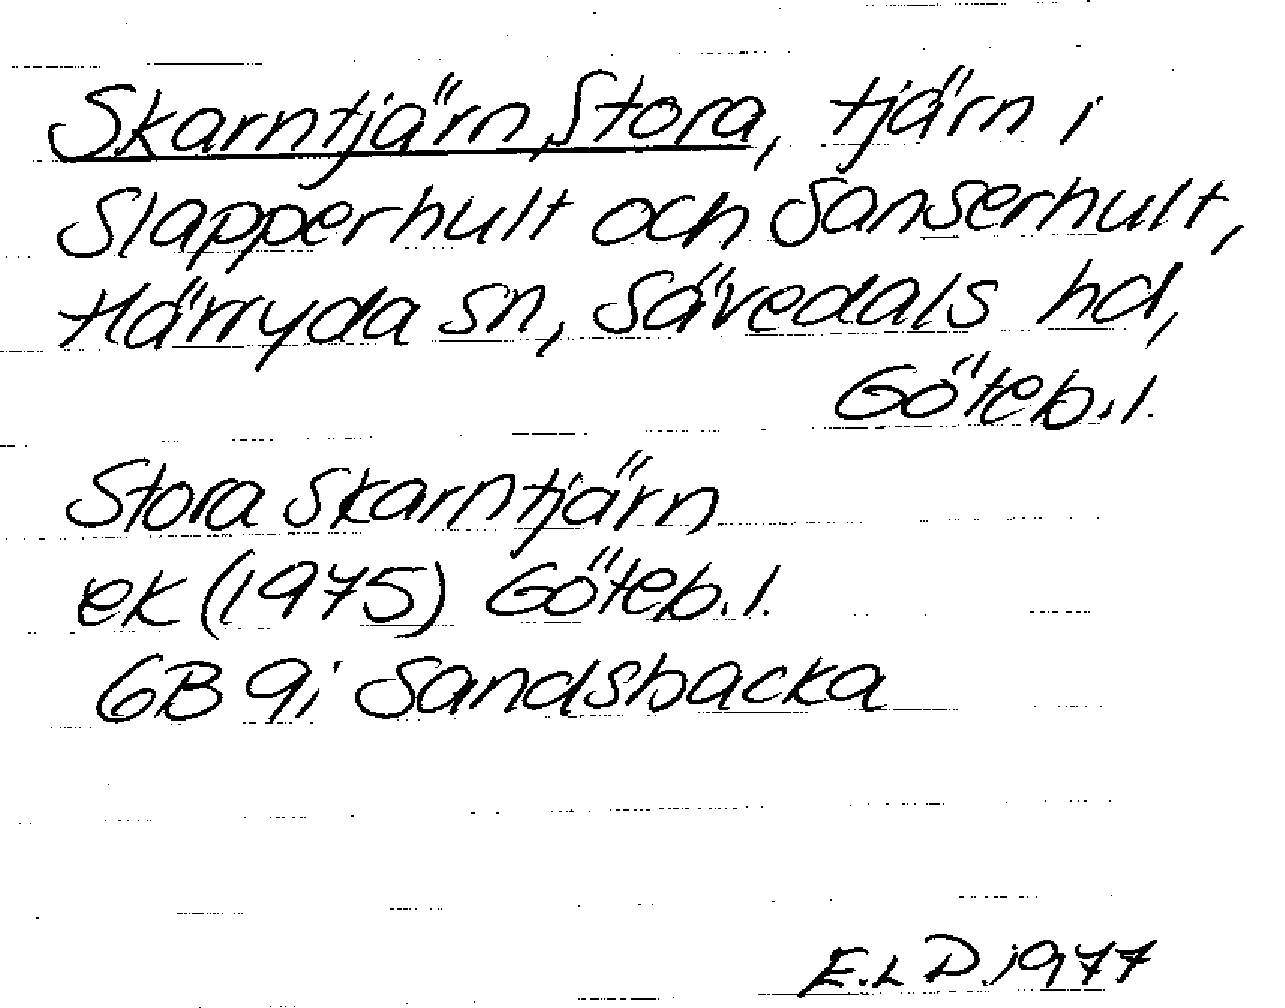 Skarntjärn, Stora, tjärn i
Slapperhult och Sanserhult,
Härryda sn, Sävedals hd,
Göteb. l.
Stora Skarntjärn
ek (1975) Göteb. l.
GB 9i Sandsbacka
E.L D. 1977